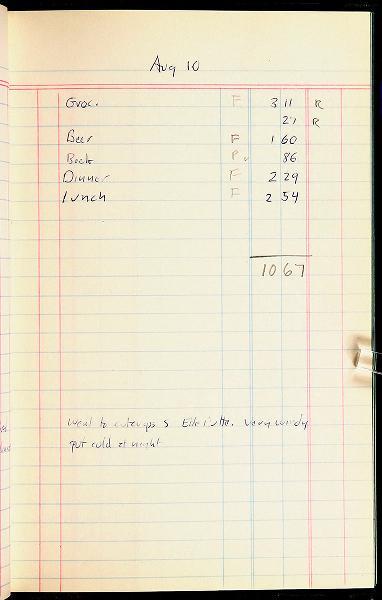 Aug 10
Groc. F 3 11 R
27 R
Beer F 1 60
Book P 86
Dinner F 2 29
Lunch F 2 54
10 67
went to outcrops S . Very windy
got cold at night